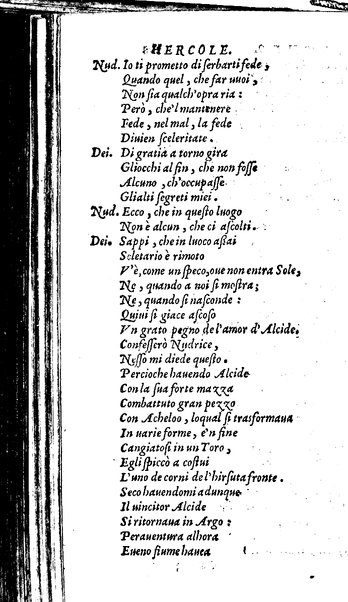 HERCOLE.
Nud. Io ti prometto di serbarti fede,
Quando quel, che far vuoi,
Non sia qualch'opra ria:
Però, che'l mantenere
Fede, nel mal, la fede
Diuien sceleritate.
Dei. Di gratia a torno gira
Gliocchi al fin, che non fosse
Alcuno, ch'occupasse
Glialti segreti miei.
Nud. Ecco, che in questo luogo
Non è alcun, che ci ascolti.
Dei. Sappi, che in luoco assai
Soletario è rimoto
V'è, come un speco, oue non entra Sole,
Ne, quando a noi si mostra;
Ne, quando si nasconde:
Quiui si giace ascoso
Vn grato pegno del'amor d'Alcide.
Confesserò Nudrice,
Nesso mi diede questo.
Percioche hauendo Alcide
Con la sua forte mazza
Combattuto gran pezzo
Con Acheloo, loqual si trasformaua
In uarie forme, e'n fine
Cangiatosi in un Toro,
Egli spiccò a costui
L'uno de corni de l'hirsuta fronte.
Seco hauendomi adunque
Il uincitor Alcide
Si ritornaua in Argo:
Perauentura alhora
Eueno fiume hauea